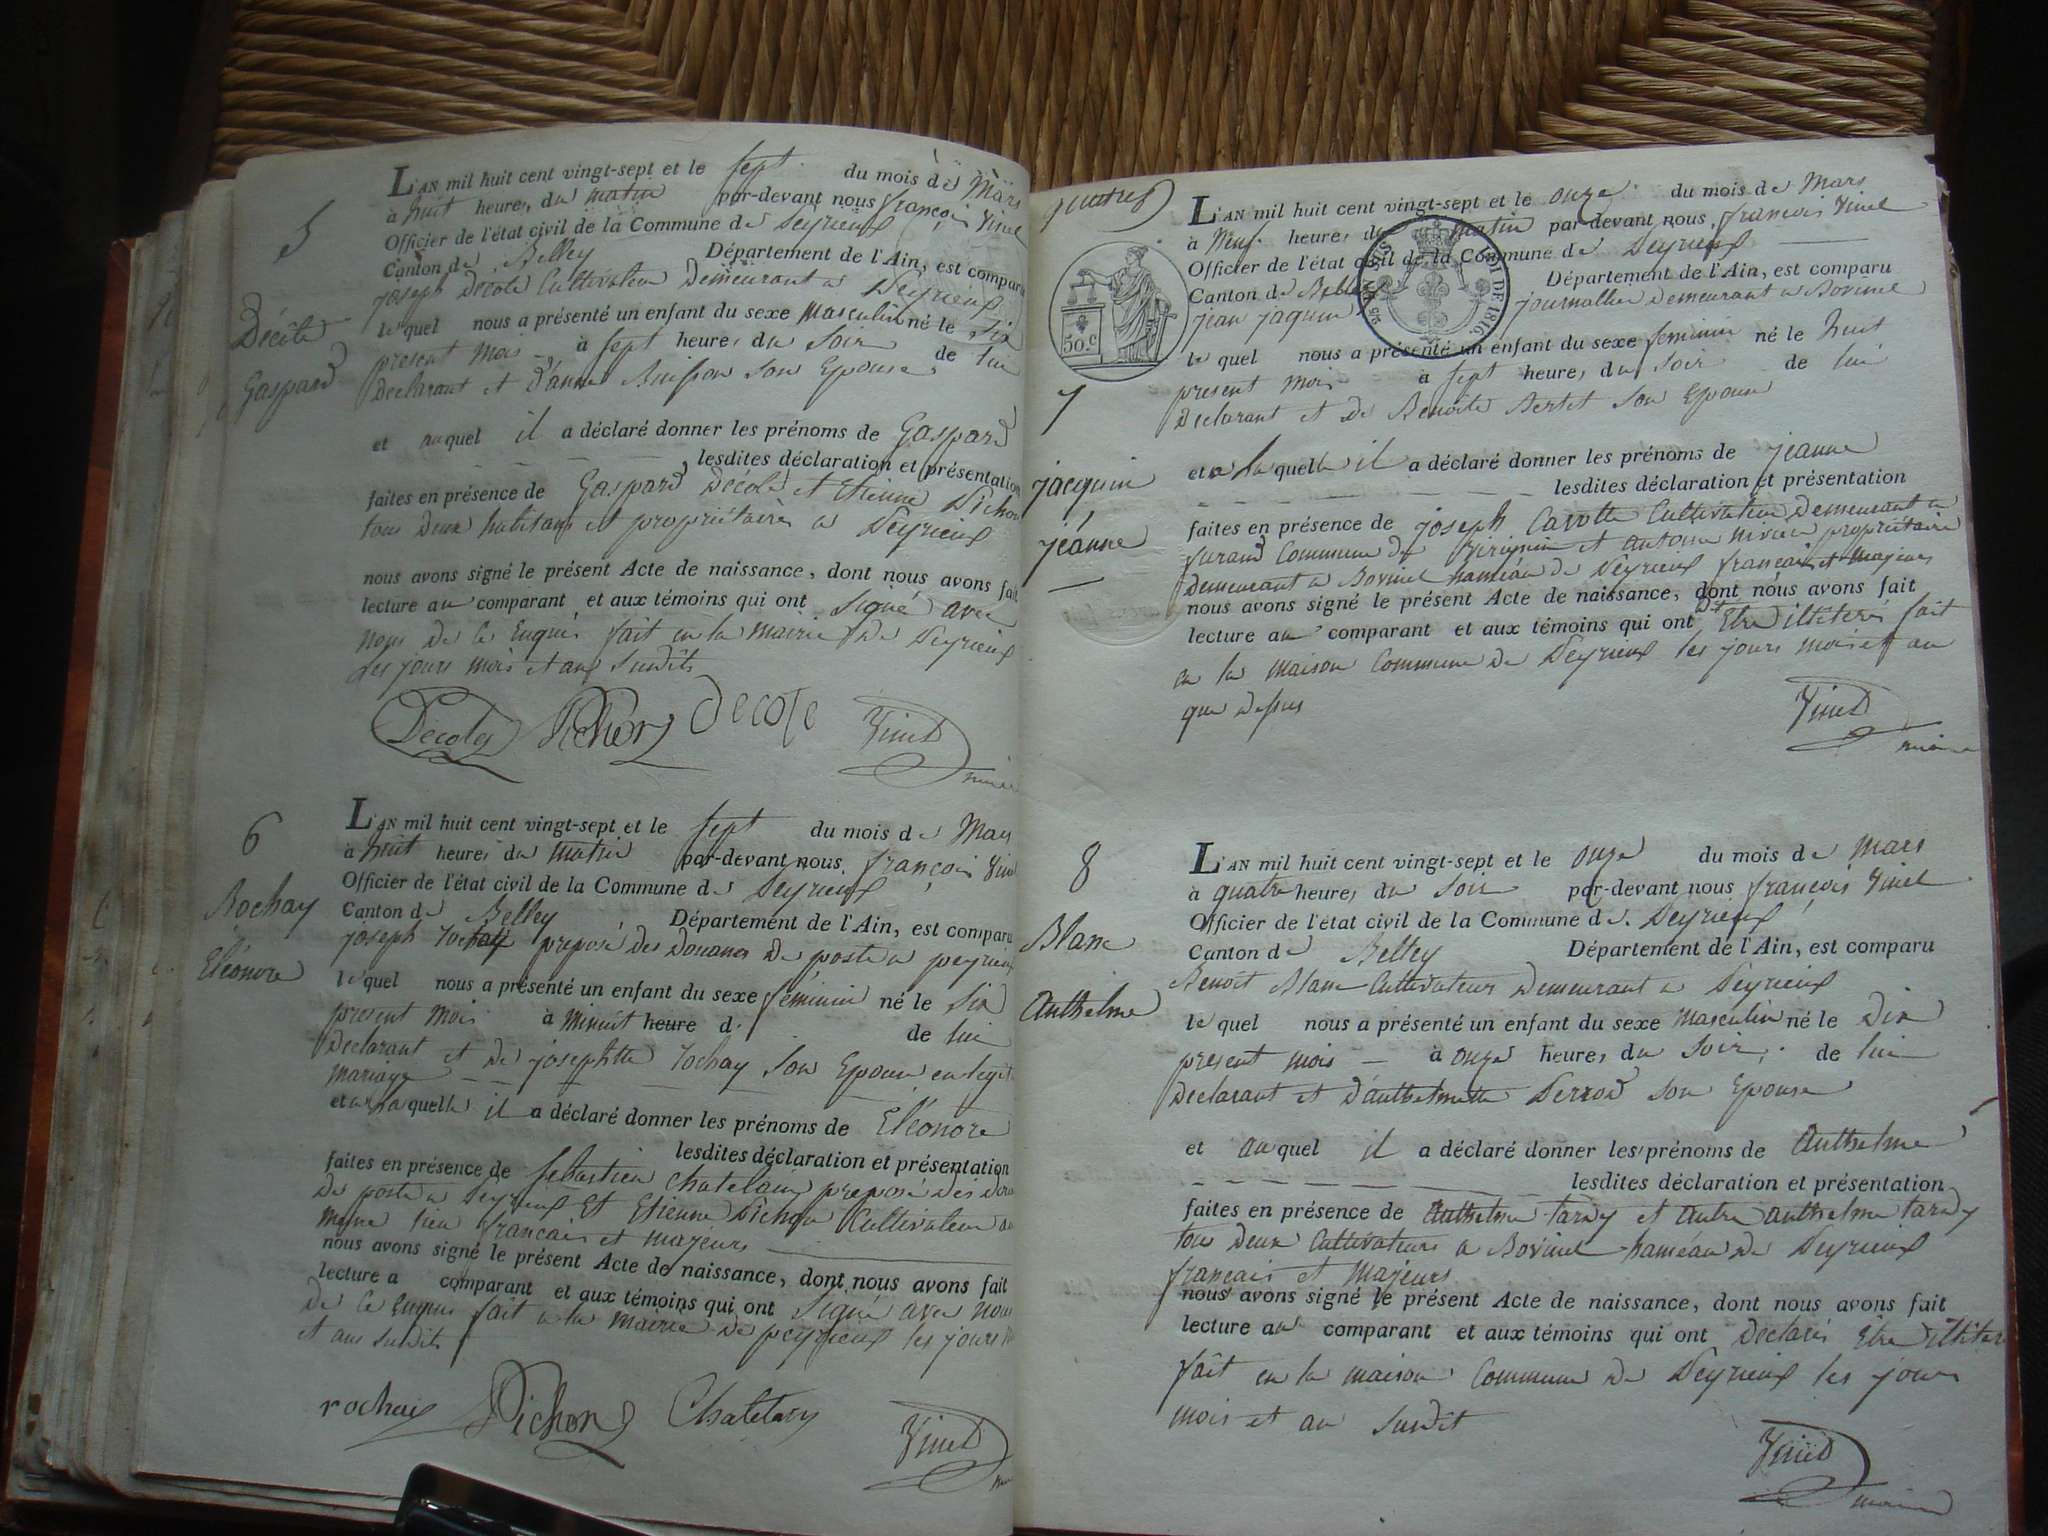 5
Décôte
Gaspard
L'AN mil huit cent vingt-sept et le sept du mois de Mars
à huit heures du matin par-devant nous françois Vinet
Officier de l'état civil de la Commune de Peyrieux
Canton de Belley Département de l'Ain, est comparu
joseph Décôte Cultivateur Demeurant a Peyrieux
lequel nous a présenté un enfant du sexe Masculin né le six
présent mois à sept heures du soir de lui
Déclarant et d'anne Buisson son Epouse
et auquel il a déclaré donner les prénoms de Gaspard
lesdites déclaration et présentation
faites en présence de Gaspard Décôte et Etienne Pichon
tous deux habitans et propriétaires a Peyrieux
nous avons signé le présent Acte de naissance, dont nous avons fait
lecture au comparant et aux témoins qui ont signé avec
nous de ce Enquis fait en la Mairie de Peyrieux
les jours mois et an susdits
Decote Pichon decote Vinet
maire
6
Rochay
Eléonore
L'AN mil huit cent vingt-sept et le sept du mois de Mars
à huit heures du matin par-devant nous françois Vinet
Officier de l'état civil de la Commune de Peyrieux
Canton de Belley Département de l'Ain, est comparu
joseph rochay preposé des Douanes de poste a peyrieux
lequel nous a présenté un enfant du sexe féminin né le six
present mois à minuit heure d de lui
Declarant et de josephtte rochay son Epouse en legit
mariage
et a laquelle il a déclaré donner les prénoms de Eléonore
lesdites déclaration et présentation
faites en présence de sebastien Chatelain preposé des doua
de poste a Peyrieux Et Etienne Pichon Cultivateur au
meme lieu francais et majeurs
nous avons signé le présent Acte de naissance, dont nous avons fait
lecture a comparant et aux témoins qui ont signé avec nous
de ce Enquis fait a la Mairie de peyrieux les jours
et ans susdits
rochay Pichon Chatelain Vinet
quatre
50.c
LOI DE 1816
7
jacquin
jeanne
L'AN mil huit cent vingt-sept et le onze du mois de Mars
à Neuf heures du matin par-devant nous françois Vinet
Officier de l'état civil de la Commune de Peyrieux
Canton de Belley Département de l'Ain, est comparu
jean jaquin journallier demeurant a Bovinel
lequel nous a présenté un enfant du sexe feminin né le huit
present mois à sept heures du soir de lui
Declarant et de Benoite Bertet son Epouse
et a laquelle il a déclaré donner les prénoms de jeanne
lesdites déclaration et présentation
faites en présence de joseph Carotte Cultivateur demeurant a
furand Commune de Virignin et antoine nivière propriétaire
demeurant a Bovinel haméau de Peyrieux francais et majeurs
nous avons signé le présent Acte de naissance, dont nous avons fait
lecture au comparant et aux témoins qui ont dit Etre illiterés fait
en la maison Commune de Peyrieux les jours mois et an
que dessus
Vinet
maire
8
Blanc
Anthelme
L'AN mil huit cent vingt-sept et le onze du mois de Mars
à quatre heures du soir par-devant nous françois Vinet
Officier de l'état civil de la Commune de Peyrieux
Canton de Belley Département de l'Ain, est comparu
Benoit Blanc Cultivateur demeurant a Peyrieux
lequel nous a présenté un enfant du sexe masculin né le Dix
present mois à onze heures du soir de lui
Declarant et d'anthelmette Perrod son Epouse
et auquel il a déclaré donner les prénoms de Anthelme
lesdites déclaration et présentation
faites en présence de Anthelme tardy et autre anthelme tardy
tous deux Cultivateurs a Bovinel haméau de Peyrieux
francais et Majeurs
nous avons signé le présent Acte de naissance, dont nous avons fait
lecture au comparant et aux témoins qui ont declarés Etre illiter
fait en la maison Commune de Peyrieux les jours
mois et an susdit
Vinet
maire